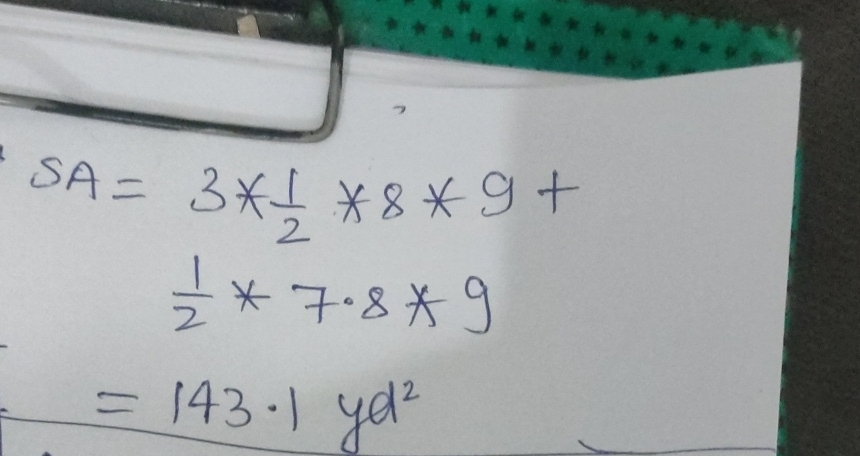 SA = 3 * 1/2 * 8 * 9 +
1/2 * 7.8 * 9
= 143.1 yd²